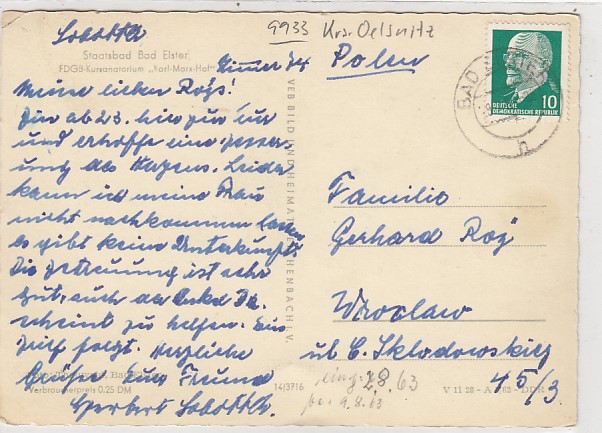 Sobottka
Staatsbad Bad Elster
FDGB-Kursanatorium „Karl-Marx-Hof"
Zimmer 74
Meine lieben Rogs!
Bin ab 2.3. hier zur Kur
und erhoffe eine Besser-
ung des Herzens. Leider
kann ich meine Frau
nicht nachkommen lassen
es gibt keine Unterkunft.
Die Betreuung ist sehr
gut, auch das
scheint zu helfen. Ein
Brief folgt. Herzliche
Grüße Euer Freund
Herbert Sobottka
Bad Elster
Verbraucherpreis 0,25 DM
VEB BILD UND HEIMAT REICHENBACH I. V.
14/3716
9933 Krs. Oelsnitz
Polen
BAD
h
10
DEUTSCHE
DEMOKRATISCHE REPUBLIK
Familie
Gerhard Rog
Wrocław
ul C. Skłodowskiej
45/3
8.63
9.8.63
V 11 28 - A 62 - DDR